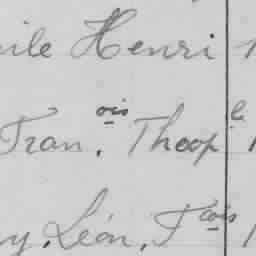 ile Henri
Fran.ois Theop.le
y. Léon. F.cois